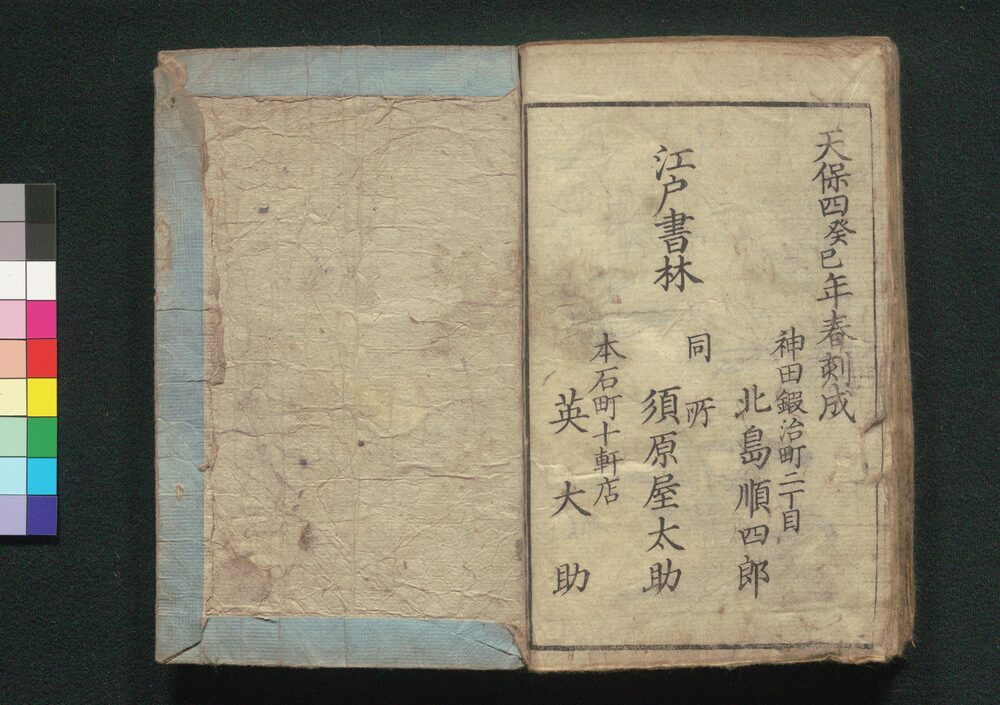 天保四癸巳年春刻成
神田鍜冶町二丁目
北島順四郎
同所
江戸書林
須原屋太助
本石町十軒店
英大助